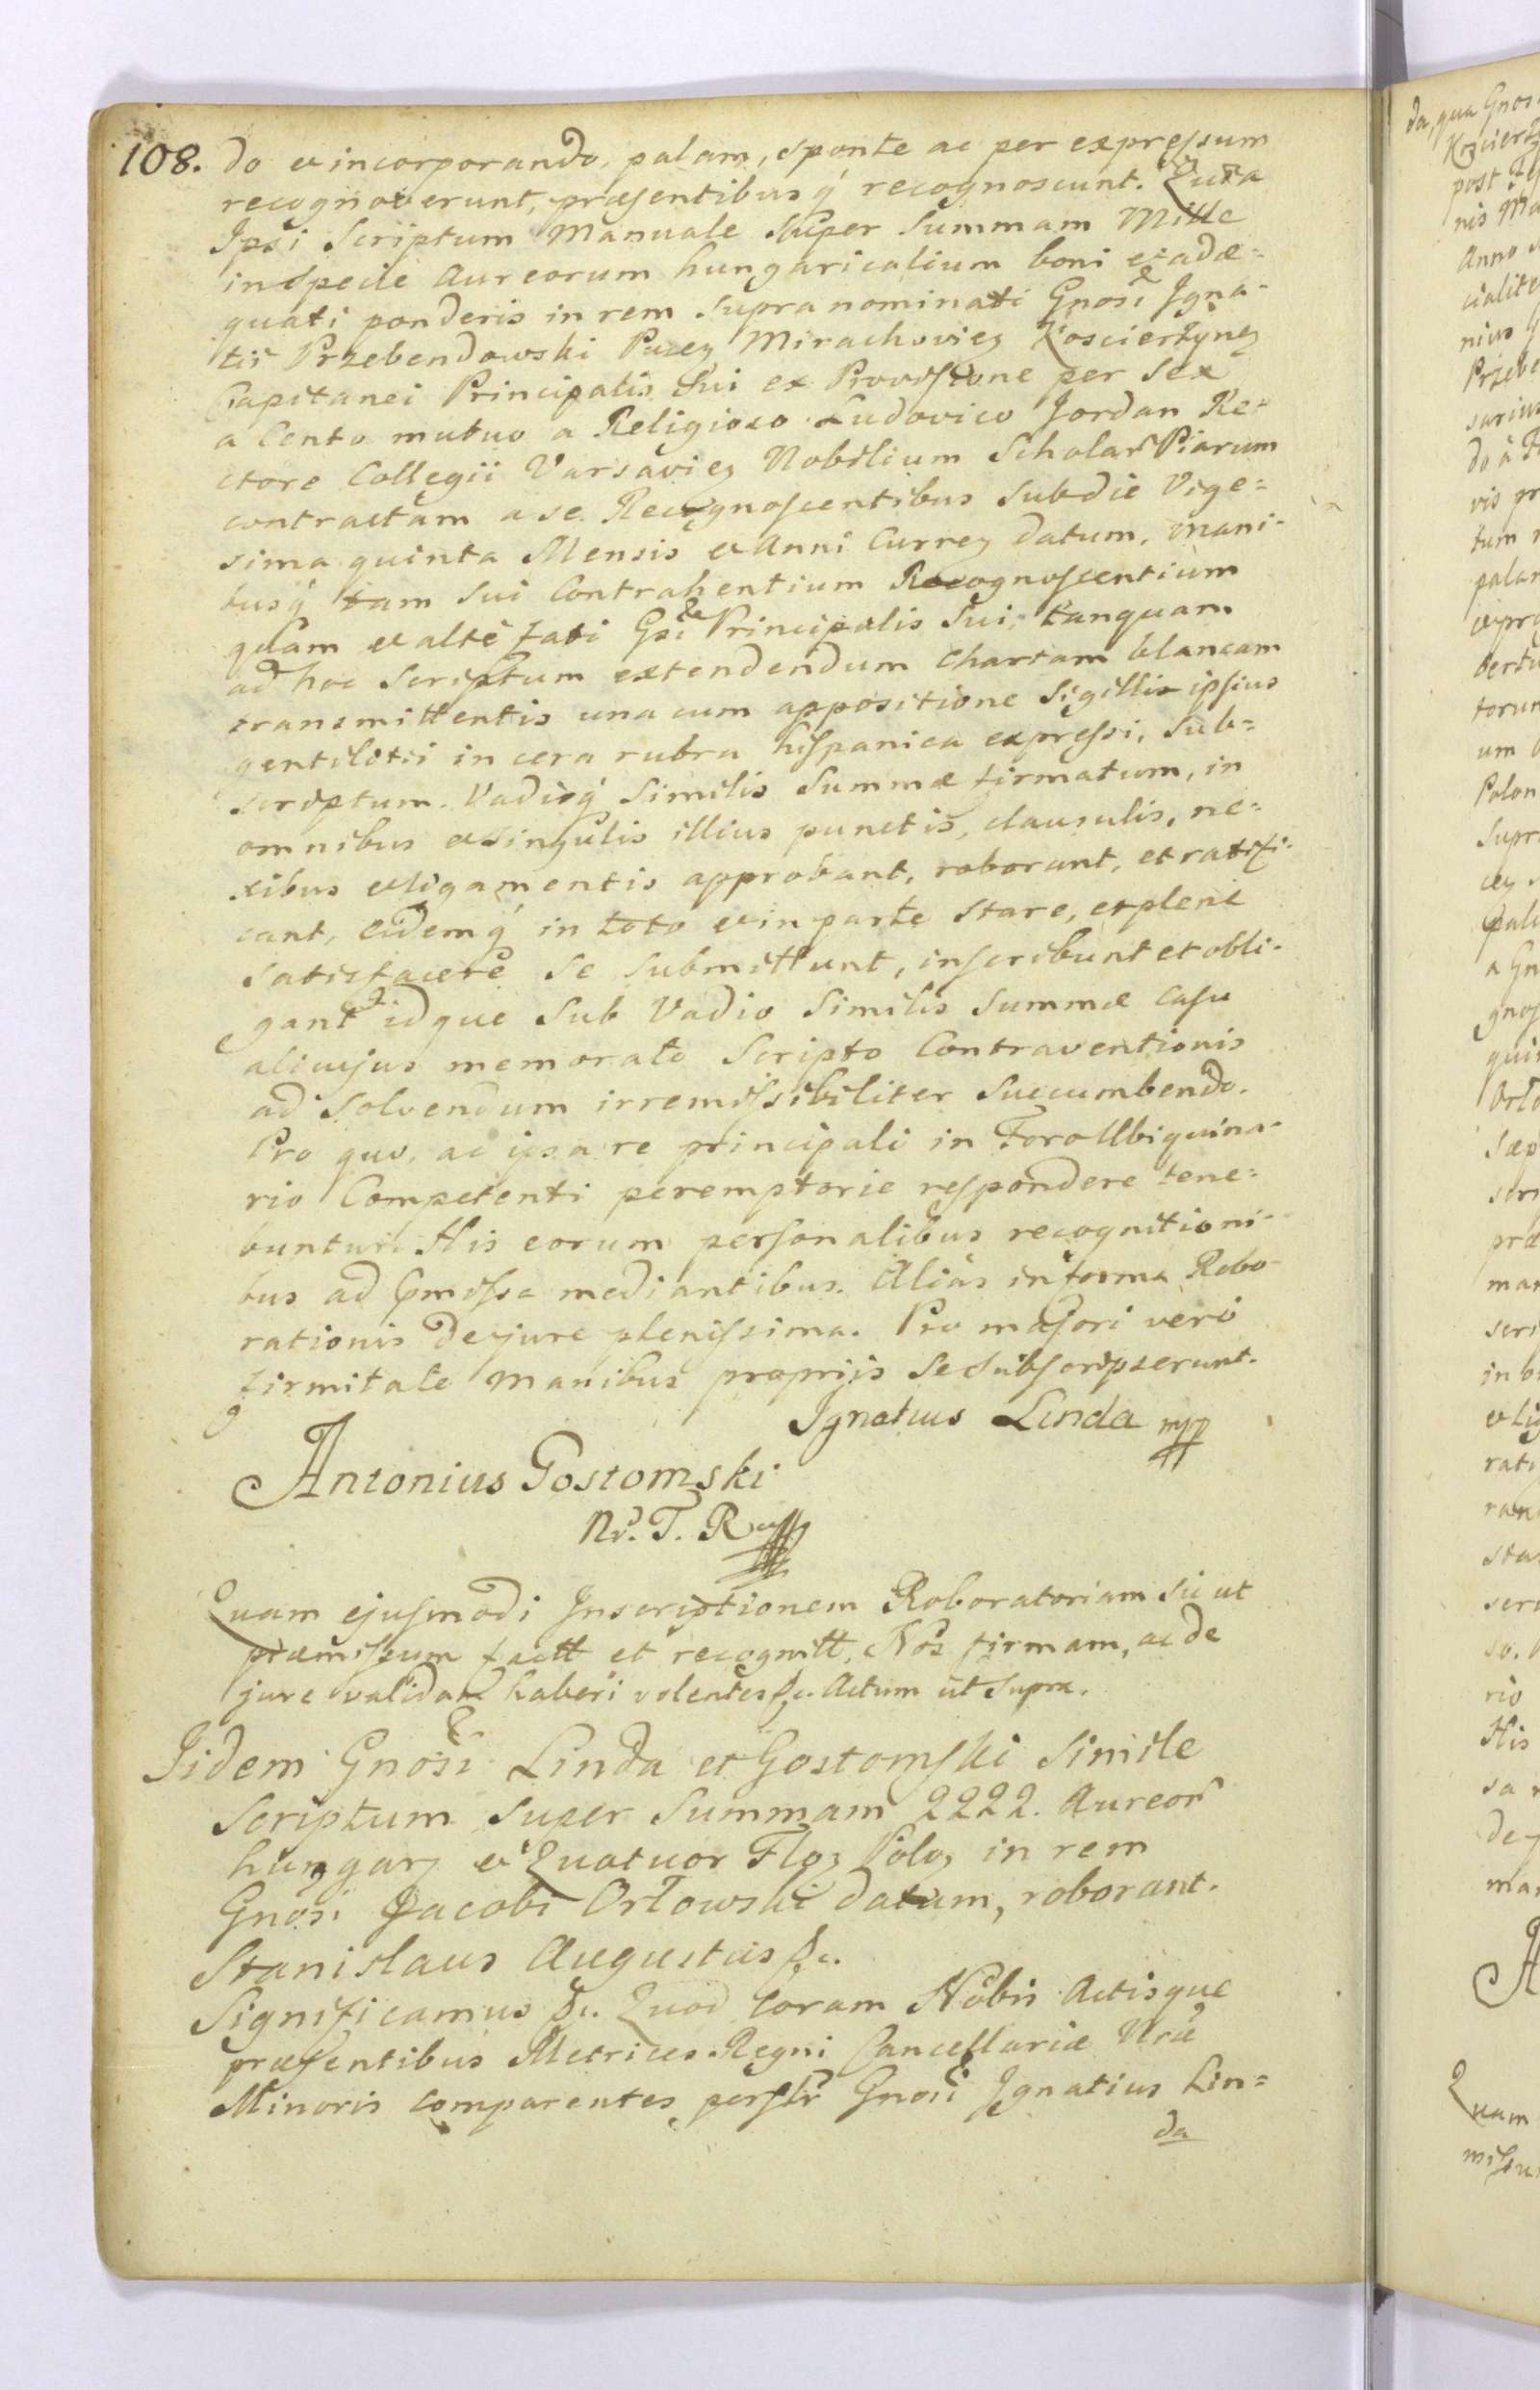 108. do et incorporando, palam, sponte ac per expressum
recognoverunt, præsentibusq́ recognoscunt. Quia
Ipsi Scriptum Manuale Super Summam Mille
in Specie Aureorum hungaricalium boni et adæ=
quati ponderis in rem Supranominati Gnosi Igna-
tii Przebendowski Pucen Mirachovien Kosciertynen
Capitanei Principalis Sui ex Provisione per Sex
a Cento mutuo a Religioso Ludovico Jordan Re-
ctore Collegii Varsavien Nobilium Scholar Piarum
contractam a se Recognoscentibus Sub die Vige=
sima quinta Mensis et Anni Curren datum, mani-
busq́ tam Sui Contrahentium Recognoscentium
quam et altè fati Gsi Principalis Sui, tanquam
ad hoc Scriptum extendendum Chartam blancam
transmittentis una cum appositione Sigillis ipsius
gentilitii in cera rubra hispanica expressi, Sub=
scriptum. Vadioq́ Similis Summæ firmatum, in
omnibus et Singulis illius punctis, clausulis, ne=
xibus et ligamentis approbant, roborant, et ratifi-
cant, Eidemq́ in toto et in parte Stare, et plene
Satisfacere Se Submittunt, inscribunt et obli-
gant idque Sub Vadio Similis Summæ casu
alicujus memorato Scripto Contraventionis
ad Solvendum irremissibiliter Succumbendo.
Pro quo, ac ipsa re principali in Foro Ubiquina-
rio Competenti peremptorie respondere tene=
buntur. His eorum personalibus recognitioni-
bus ad Pmissa mediantibus. Alias in forma Robo-
rationis de jure plenissima. Pro majori vero
firmitate Manibus propriis Se Subscripserunt.
Ignatius Linda mpp
Antonius Gostomski
Nr. T. R
Quam ejusmodi Inscriptionem Roboratoriam Sic ut
præmissum factt et recognitt, Nos firmam, ac de
jure validam haberi volentes &c. Actum ut Supra.
Iidem Gnosi Linda et Gostomski Simile
Scriptum Super Summam 2222. Aureor
hungar et Quatuor Flor Polo, in rem
Gnosi Jacobi Ortowski datum, roborant.
Stanislaus Augustus &c.
Significamus &c. Quod Coram Nobis Actisque
præsentibus Metrices Regni Cancellariæ Nræ
Minoris Comparentes persltr Gnosi Ignatius Lin=
da